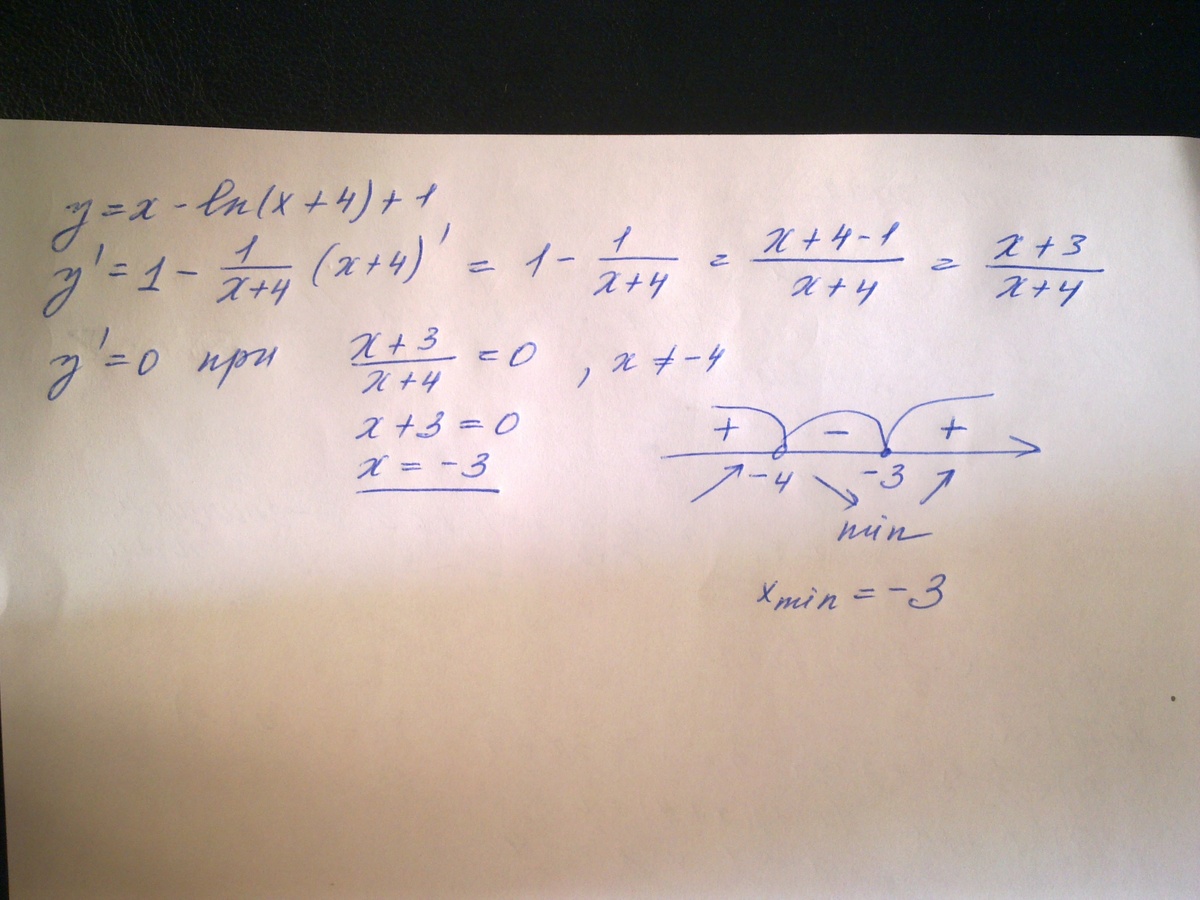 y = x - ln(x+4)+1
y' = 1 - 1/(x+4) (x+4)' = 1 - 1/(x+4) = (x+4-1)/(x+4) = (x+3)/(x+4)
y' = 0 при (x+3)/(x+4) = 0 , x ≠ -4
x+3 = 0
x = -3
+ - +
-4 -3
min
xmin = -3